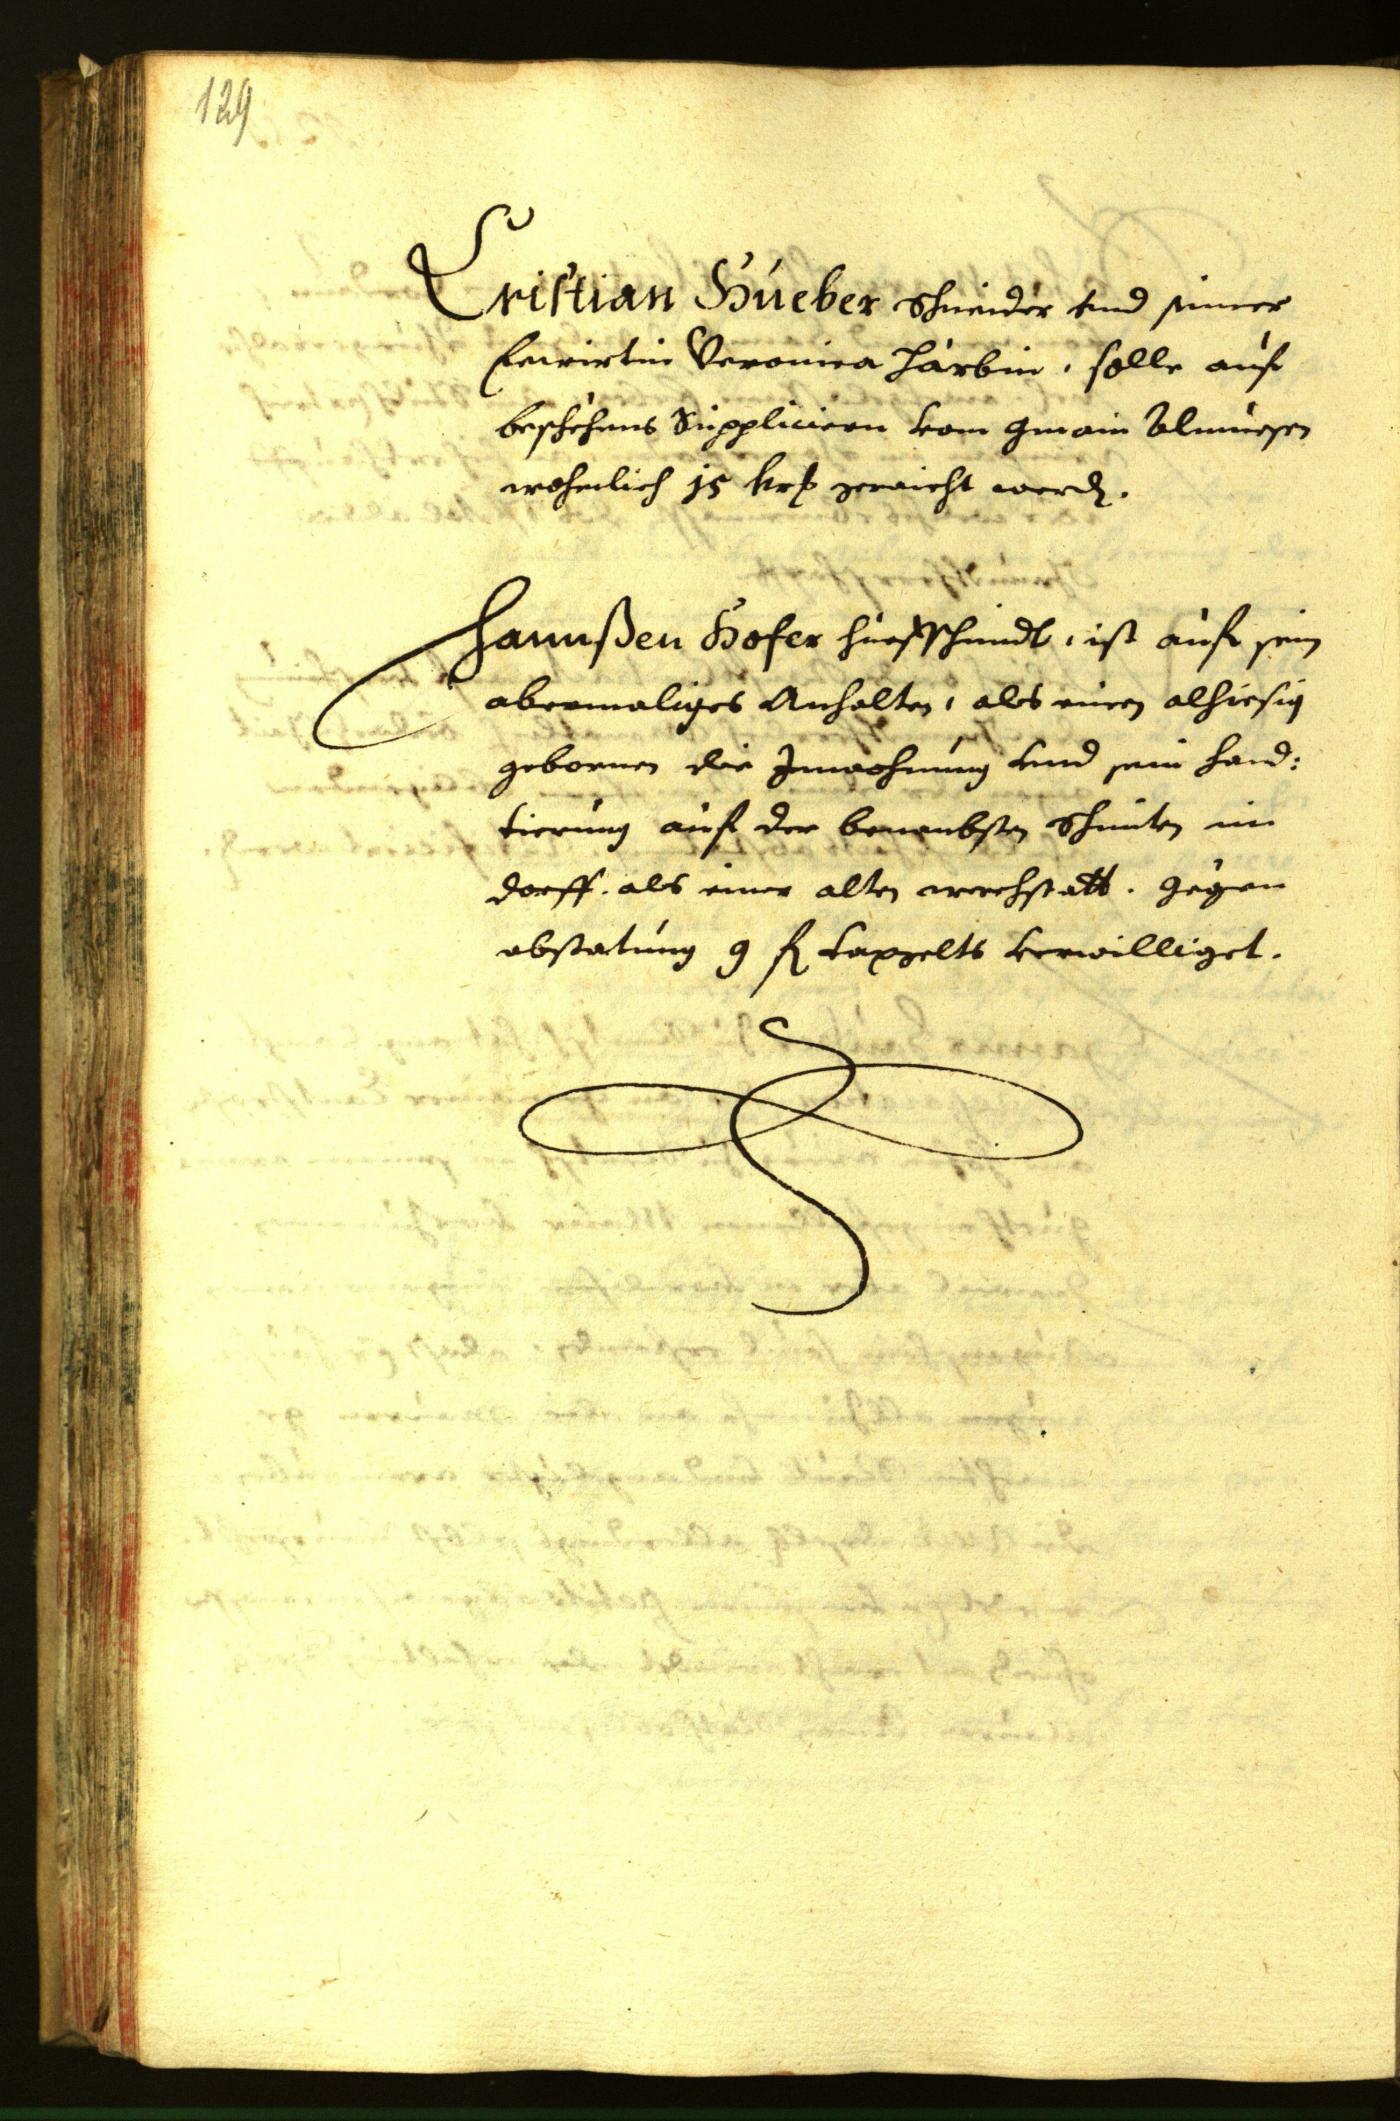 129
Cristian Hueber Schneider vnd seiner
Eewirtin Veronica Härbin, solle auf
beschehens Suppliciern vom gmain Almuesen
wochenlich 15 krs gereicht werdn.
Hannßen Hofer Huefschmidt, ist auf sein
abermaliges Anhalten, als einen alhiesig
gebornen die Inwohnung vnd sein Hand:
tierung auf der benenbsten Schmiten im
dorff. als einer alten werchstatt. gegen
abstatung 9 fl taxgelts verwilliget.